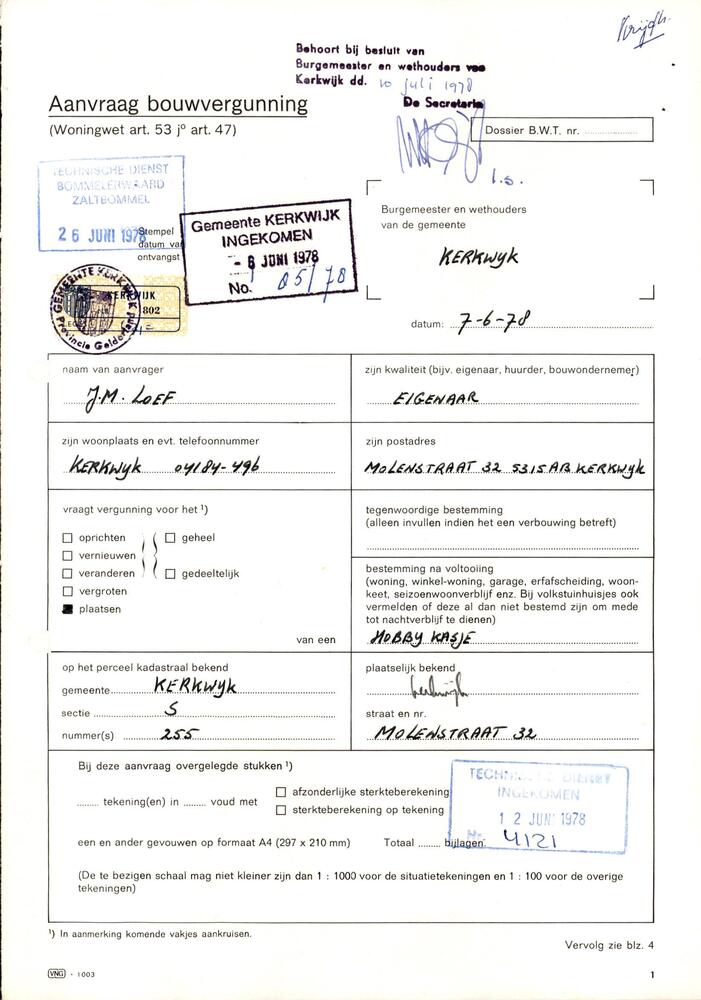 Behoort bij besluit van
Burgemeester en wethouders van
Kerkwijk dd. 10 juli 1978
De Secretaris
Aanvraag bouwvergunning
(Woningwet art. 53 jº art. 47)
Dossier B.W.T. nr.
l.s.
TECHNISCHE DIENST
BOMMELERWAARD
ZALTBOMMEL
26 JUNI 1978
Stempel
datum van
ontvangst
Gemeente KERKWIJK
INGEKOMEN
- 8 JUNI 1978
No. 05/78
Burgemeester en wethouders
van de gemeente
KERKWYK
GEMEENTE KERKWIJK
Provincie Gelderland
KERKWIJK
802
datum: 7-6-78
naam van aanvrager
J.M. LOEF
zijn kwaliteit (bijv. eigenaar, huurder, bouwondernemer)
EIGENAAR
zijn woonplaats en evt. telefoonnummer
KERKWYK 04184-496
zijn postadres
MOLENSTRAAT 32 5315 AB KERKWYK
vraagt vergunning voor het ¹)
oprichten
geheel
vernieuwen
veranderen
gedeeltelijk
vergroten
plaatsen
van een
tegenwoordige bestemming
(alleen invullen indien het een verbouwing betreft)
bestemming na voltooiing
(woning, winkel-woning, garage, erfafscheiding, woon-
keet, seizoenwoonverblijf enz. Bij volkstuinhuisjes ook
vermelden of deze al dan niet bestemd zijn om mede
tot nachtverblijf te dienen)
HOBBY KASJE
op het perceel kadastraal bekend
gemeente KERKWYK
sectie S
nummer(s) 255
plaatselijk bekend
kerkwijk
straat en nr.
MOLENSTRAAT 32
Bij deze aanvraag overgelegde stukken ¹)
tekening(en) in voud met
afzonderlijke sterkteberekening
sterkteberekening op tekening
een en ander gevouwen op formaat A4 (297 x 210 mm)
Totaal bijlagen:
TECHNISCHE DIENST
INGEKOMEN
12 JUNI 1978
Nr. 4121
(De te bezigen schaal mag niet kleiner zijn dan 1 : 1000 voor de situatietekeningen en 1 : 100 voor de overige
tekeningen)
¹) In aanmerking komende vakjes aankruisen.
Vervolg zie blz. 4
VNG - 1003
1